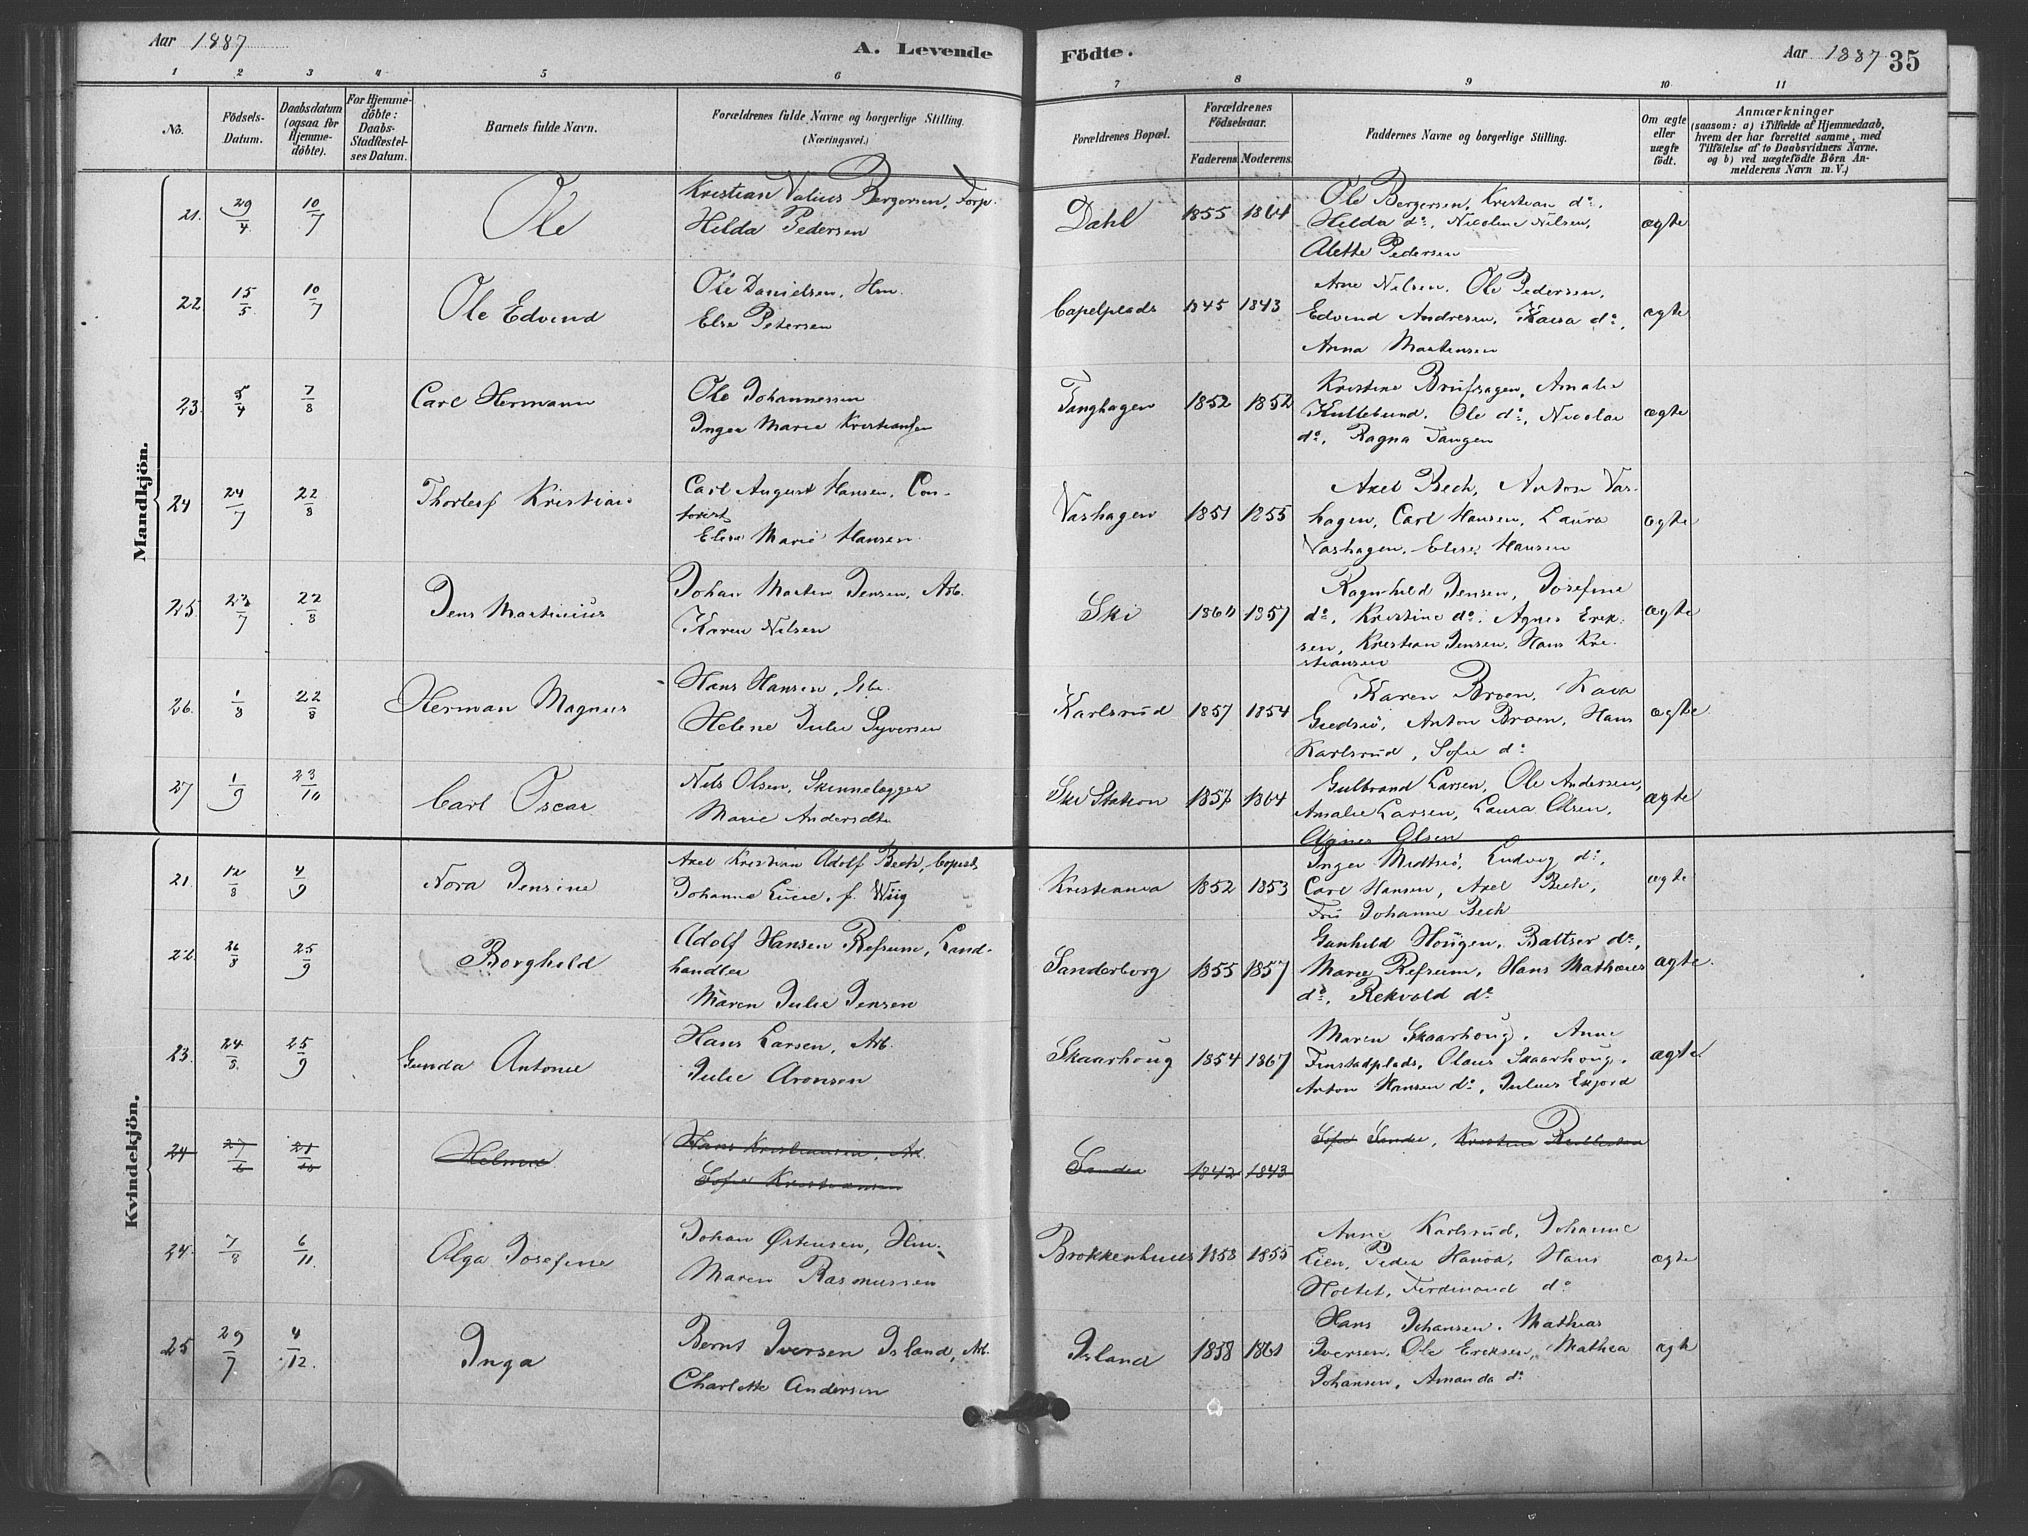 Aar 1887
A. Levende Födte.
Aar 1887 35
1 2 3 4 5 6 7 8 9 10 11
No.
Födsels-Datum.
Daabsdatum (ogsaa for Hjemme-döbte).
For Hjemme-döbte: Daabs-Stadfæstel-ses Datum.
Barnets fulde Navn.
Forældrenes fulde Navne og borgerlige Stilling. (Næringsvei.)
Forældrenes Bopæl.
Forældrenes Födselsaar.
Faderens. Moderens.
Faddernes Navne og borgerlige Stilling.
Om ægte eller uægte födt.
Anmærkninger
(saasom: a) i Tilfælde af Hjemmedaab, hvem der har forrettet samme, med Tilföielse af to Daabsvidners Navne. og b) ved uægtefödte Börn An-melderens Navn m. V.)
Mandkjön.
21. 29/4 10/7 Ole
Kristian Valius Bergersen, Forp.
Hilda Pedersen
Dahl 1855 1864
Ole Bergersen, Kristian do.
Hilda do, Nicoline Nilsen,
Alette Pedersen
ægte
22. 15/5 10/7 Ole Edvind
Ole Danielsen, Hm.
Else Petersen
Capelplads 1845 1843
Ane Nilsen, Ole Pedersen,
Edvind Andresen, Kaia do,
Anna Martinsen
ægte
23. 5/4 7/8 Carl Hermann
Ole Johannessen
Inger Marie Kristiansen
Tanghagen 1852 1852
Kristine Amalie
Kullebund, Ole do, Nicolai
do, Ragna Tangen
ægte
24 24/7 22/8 Thorleif Kristian
Carl August Hansen, Con-
torist
Elise Marie Hansen
Vashagen 1851 1855
Axel Bech, Anton Vas-
hagen, Carl Hansen, Laura
Vashagen, Elise Hansen
ægte
25. 23/7 22/8 Jens Martinius
Johan Martin Jensen, Arb.
Karen Nilsen
Ski 1860 1857
Ragnhild Jensen, Josefine
do, Kristine do, Agnes Erik-
sen, Kristian Jensen, Hans Kri-
stiansen
ægte
26. 1/8 22/8 Herman Magnus
Hans Hansen, Gbr.
Helene Julie Syversen
Karlsrud 1857 1854
Karen Broen, Kaia
Gjedsiö, Anton Broen, Hans
Karlsrud, Sofie do
ægte
27 1/9 23/10 Carl Oscar
Nils Olsen, Skinnelægger
Marie Andersdtr
Ski Station 1857 1864
Gulbrand Larsen, Ole Andersen,
Amalie Larsen, Laura Olsen,
Agnes Olsen
ægte
Kvindekjön.
21. 12/8 4/9 Nora Jensine
Axel Kristian Adolf Bech, Copist
Johanne Lucie, f. Wiig
Kristiania 1852 1853
Inger Midtsiö, Ludvig do,
Carl Hansen, Axel Bech,
Fru Johanne Bech
ægte
22. 26/8 25/9 Borghild
Adolf Hansen Refsum, Land-
handler
Maren Julie Jensen
Sanderborg 1855 1857
Gunhild Hougen, Baltser do,
Marie Refsum, Hans Mathæus
do, Rekvold do
ægte.
23. 24/8 25/9 Gunda Antonie
Hans Larsen, Arb.
Julie Aronsen
Skaarhoug 1854 1867
Maren Skaarhoug, Anne
Finstadplads, Olaus Skaarhoug,
Anton Hansen do, Julius Exjord
ægte
24 27/6 21/10 Helmine
Hans Kristiansen, Arb.
Sofie Kristiansen
Sander 1842 1843
Sofie Sander, Kristine
24. 7/8 6/11 Olga Josefine
Johan Østensen, Hm.
Maren Rasmussen
Brokkenhuus 1858 1855
Anne Karlsrud, Johanne
Lien, Peder Hauva, Hans
Holtet, Ferdinand do
ægte
25 29/7 4/12. Inga
Bernt Iversen Island, Arb.
Charlotte Andersen
Island 1858 1861
Hans Johansen, Mathias
Iversen, Ole Eriksen, Mathea
Johansen, Amanda do
ægte